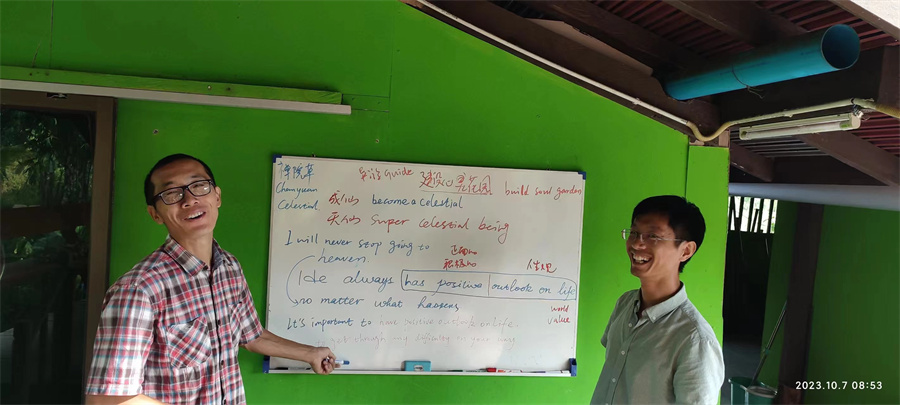 禅院草 导游Guide 建设心灵花园 build soul garden
Chanyuan
Celestial 成仙 become a celestial
天仙 Super Celestial being
I will never stop going to
heaven.
正面的
积极的 人生观
He always has positive outlook on life
no matter what happens
world
value
It's important to have positive outlook on life
2023.10.7 08:53